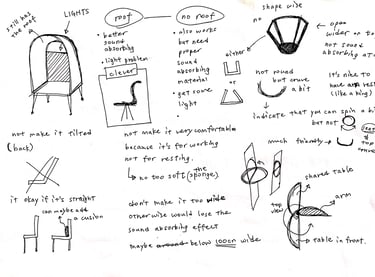 still has the roof
LIGHTS
roof
• better
sound
absorbing
• light problem
clever
no roof
• also works
but need
proper
sound
absorbing
material
• get some
light
either
or
shape wise
no
open
wider on to
not sound
absorbing at
not round
but curve
a bit
it's nice to
have arm rest
(like a king)
indicate that you can spin a bit
but not
seat
top
much friendly
not make it tilted
(back)
it okay if it's straight
can maybe add
a cusion
not make it very comfortable
because it's for working
not for resting.
↳ no too soft (the sponge)
don't make it too wide
otherwise would lose the
sound absorbing effect
maybe around below 100cm wide
top view
shared table
arm
table in front.